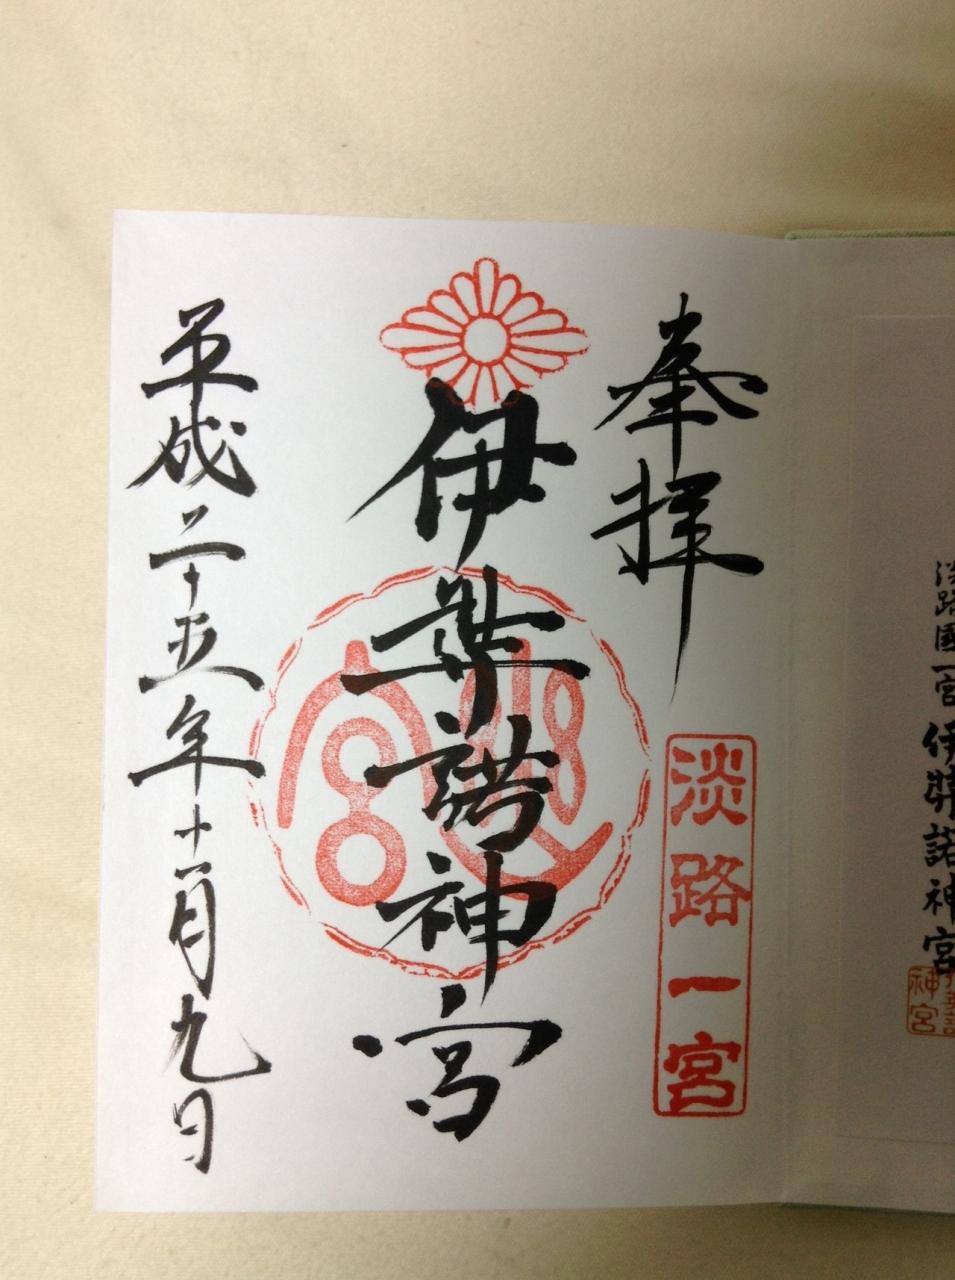 奉拝
淡路一宮
伊弉諾神宮
平成二十五年十一月九日
淡路國一宮 伊弉諾神宮